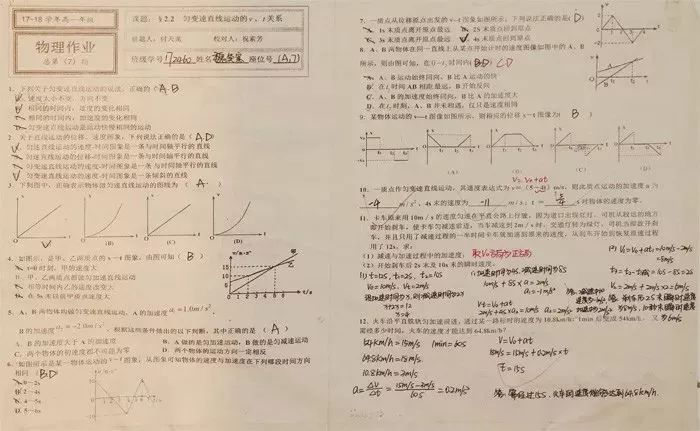 17-18学年高一年级
物理作业
总第(7)期
课题：§2.2 匀变速直线运动的v、t关系
班级学号 姓名 座位号(A,7)
1、下列关于匀变速直线运动的说法，正确的(A.B
A、速度大小不变，方向不变
B、相同的时间内，速度的变化相同
C、相同的时间内，加速度的变化相同
2、关于直线运动的位移、速度图象，下列说法正确的是(A.D)
A、匀速直线运动的速度-时间图象是一条与时间轴平行的直线
B、匀速直线运动的位移-时间图象是一条与时间轴平行的直线
C、匀变速直线运动的速度-时间图象是一条与时间轴平行的直线
D、匀变速直线运动的速度-时间图象是一条倾斜的直线
3、下列图中，正确表示物体做匀速直线运动的图线为(A)
(A) (B) (C) (D)
4、如图示，是甲、乙两质点的v-t图象，由图可知(B)
A、t=0时刻，甲的速度大
B、甲、乙两质点都做匀加速直线运动
C、相等时间内乙的速度改变大
D、在5s末以前甲质点速度大
5、A、B两物体均做匀变速直线运动，A的加速度a₁=1.0m/s²，
B的加速度a₂=-2.0m/s²，根据这些条件做出的以下判断，其中正确的是(A)
A、B的加速度大于A的加速度 B、A做的是匀加速运动，B做的是匀减速运动
C、两个物体的初速度都不可能为零 D、两个物体的运动方向一定相反
6、如图所示是某一物体运动的v-t图象，从图象可知物体的速度与加速度在下列哪段时间方向
相同(B.D)
A、0—2s
B、2—4s
C、4—5s
D、5—6s
7、一质点从位移原点出发的v-t图象如图所示，下列说法正确的是(D)
A、1s末质点离开原点最远 B、2S末质点回到原点
C、3s末质点离开原点最远 D、4s末质点回到原点
8、A、B两物体在同一直线上从某点开始计时的速度图像如图中的A、B
所示，则由图可知，在0-t₁时间内(BD) CD
A、A、B运动始终同向，B比A运动的快
B、在t₁时间AB相距最远，B开始反向
C、A、B的加速度始终同向，B比A的加速度大
D、在t₁时刻，A、B并未相遇，仅只是速度相同
9、某物体运动的v-t图像如图所示，则相应的位移x-t图像为(B)
(A) (B) (C) (D)
V=V₀+at
10、一质点作匀变速直线运动，其速度表达式为v=(5-4t)m/s，则此质点运动的加速度a为
-4 m/s²，4s末的速度为 -11 m/s；t= 5/4 s时物体的速度为零。
11、卡车原来用10m/s的速度匀速在平直公路上行驶，因为道口出现红灯，司机从较远的地方
即开始刹车，使卡车匀减速前进，当车减速到2m/s时，交通灯转为绿灯，司机当即放开刹
车，并且只用了减速过程的一半时间卡车就加速到原来的速度，从刹车开始到恢复原速过程
用了12s。求：
(1)减速与加速过程中的加速度；
(2)开始刹车后2s末及10s末的瞬时速度。
12、火车沿平直轨道匀加速前进，通过某一路标时的速度为10.8km/h，1min后变成54km/h，又
需经多少时间，火车的速度才能达到64.8km/h？
54km/h=15m/s 1min=60s
64.8km/h=18m/s
10.8km/h=3m/s
a=ΔV/Δt=(15m/s-3m/s)/60s=0.2m/s²
V=V₀+at
18m/s=15m/s+0.2m/s×t
t=15s
答：需经过15s，火车的速度能够达到64.8km/h.